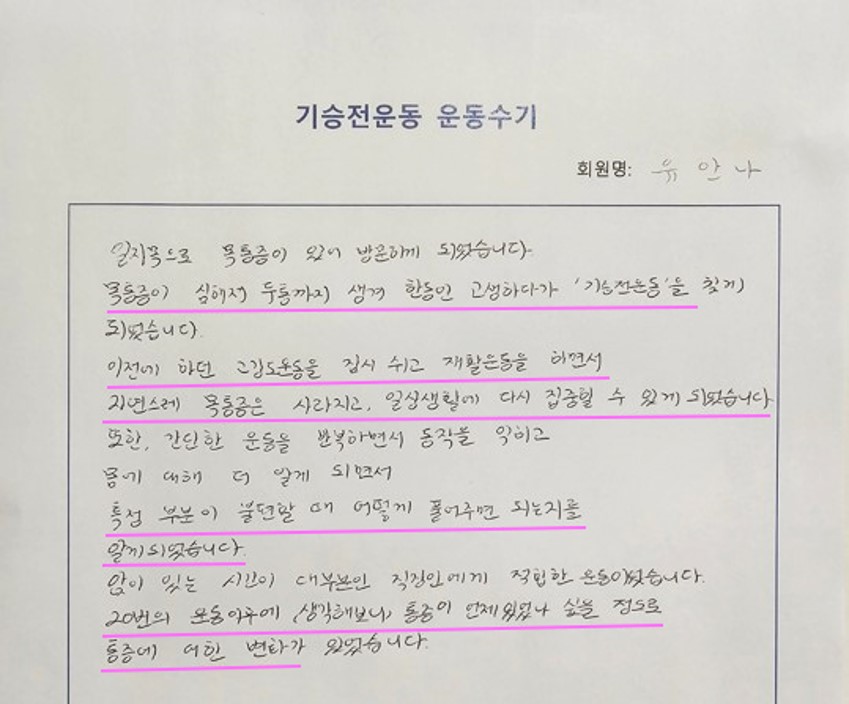 기승전운동 운동수기
회원명: 유 안 나
일자목으로 목통증이 있어 방문하게 되었습니다.
목통증이 심해져 두통까지 생겨 한동안 고생하다가 '기승전운동'을 찾게
되었습니다.
이전에 하던 고강도운동을 잠시 쉬고 재활운동을 하면서
자연스레 목통증은 사라지고, 일상생활에 다시 집중할 수 있게 되었습니다.
또한, 간단한 운동을 반복하면서 동작을 익히고
몸에 대해 더 알게 되면서
특정 부분이 불편할 때 어떻게 풀어주면 되는지를
알게되었습니다.
앉아 있는 시간이 대부분인 직장인에게 적합한 운동이었습니다.
20번의 운동이후에 (생각해보니) 통증이 언제있었나 싶을 정도로
통증에 대한 변화가 있었습니다.